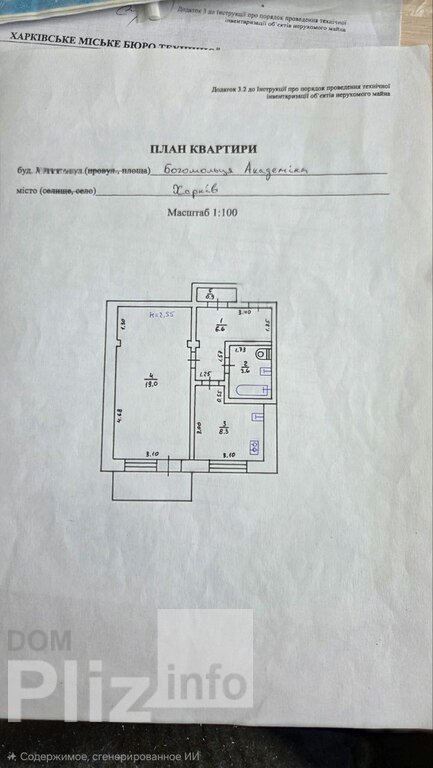 Додаток 3 до Інструкції про порядок проведення технічної
інвентаризації об'єктів нерухомого майна
ХАРКІВСЬКЕ МІСЬКЕ БЮРО
Додаток 3.2 до Інструкції про порядок проведення технічної
інвентаризації об'єктів нерухомого майна
ПЛАН КВАРТИРИ
буд. вул.(провул., площа) Богомольця Академіка
місто (селище, село) Харків
Масштаб 1:100
h=2,55
1
6.6
3.40
1.85
1.30
1.57
1.73
2
3.6
4
19.0
1.25
0.55
4.68
3.00
3
8.3
3.10
3.10
DOM
Pliz info
Содержимое, сгенерированное ИИ